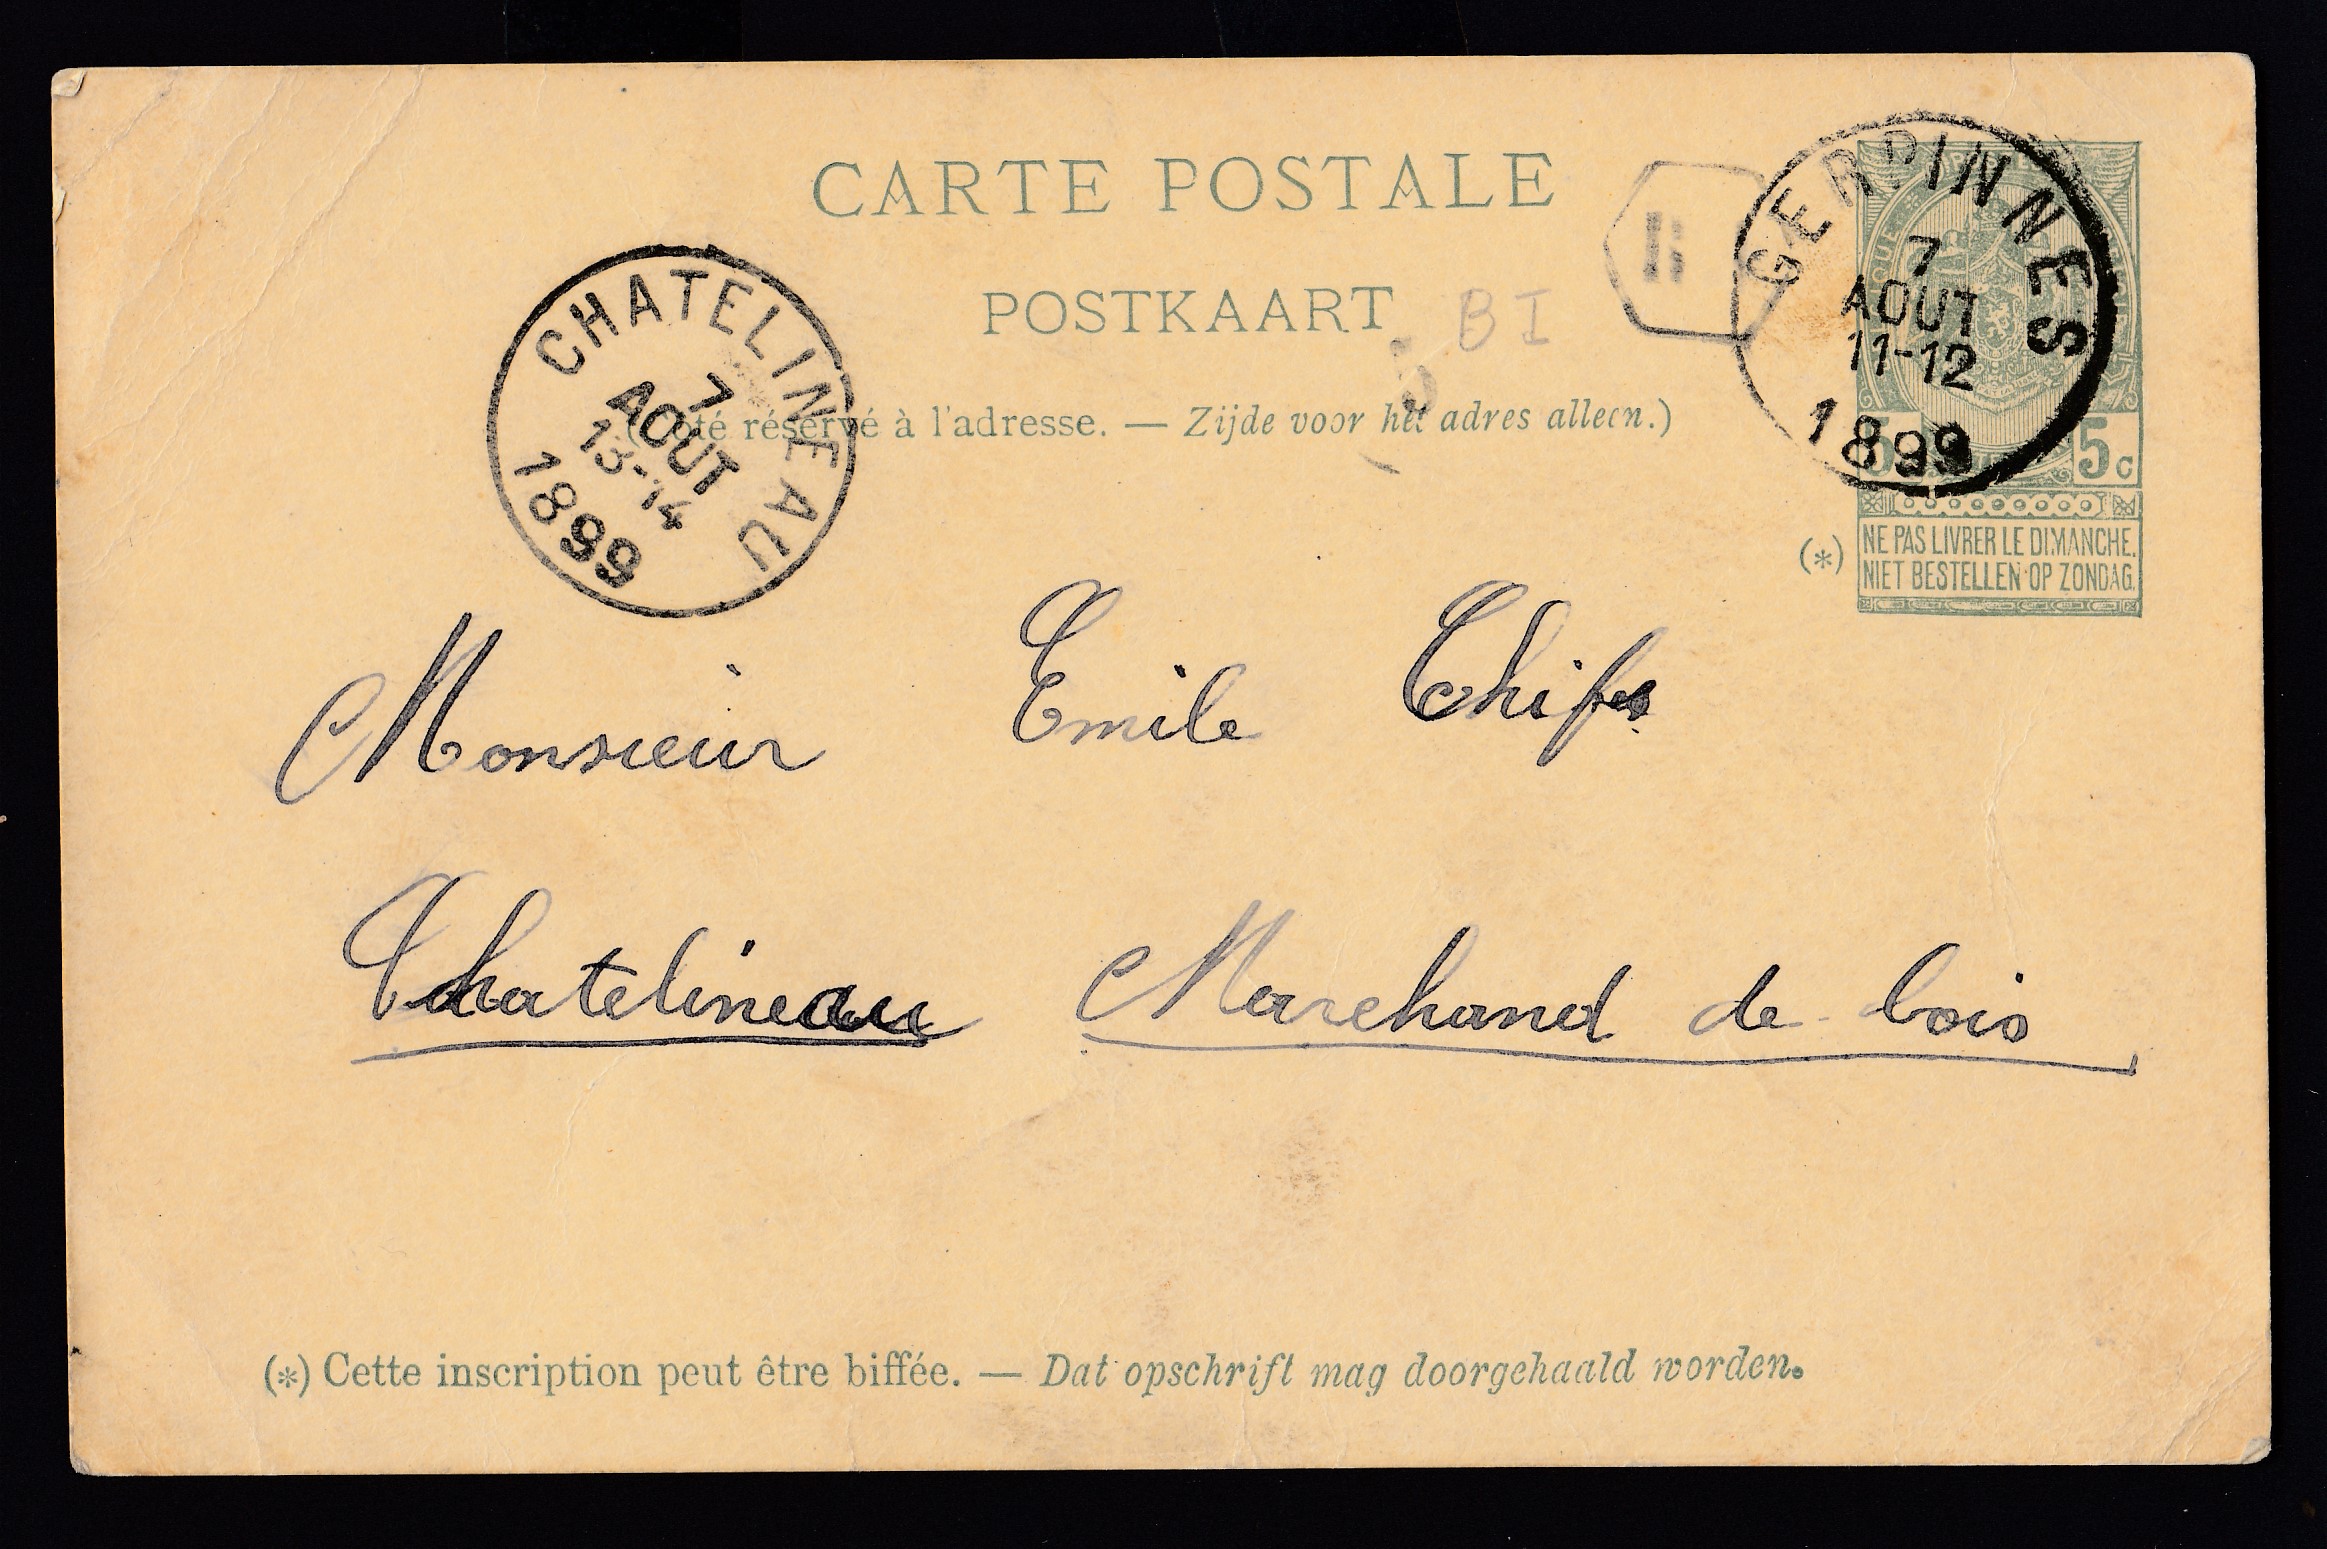 CARTE POSTALE
POSTKAART
BI
(Côté réservé à l'adresse. — Zijde voor het adres alleen.)
CHATELINEAU
7
AOUT
13-14
1899
GERPINNES
7
AOUT
11-12
1899
5 5c
(*) NE PAS LIVRER LE DIMANCHE.
NIET BESTELLEN OP ZONDAG.
Monsieur Emile
Chatelineau Marchand de bois
(*) Cette inscription peut être biffée. — Dat opschrift mag doorgehaald worden.